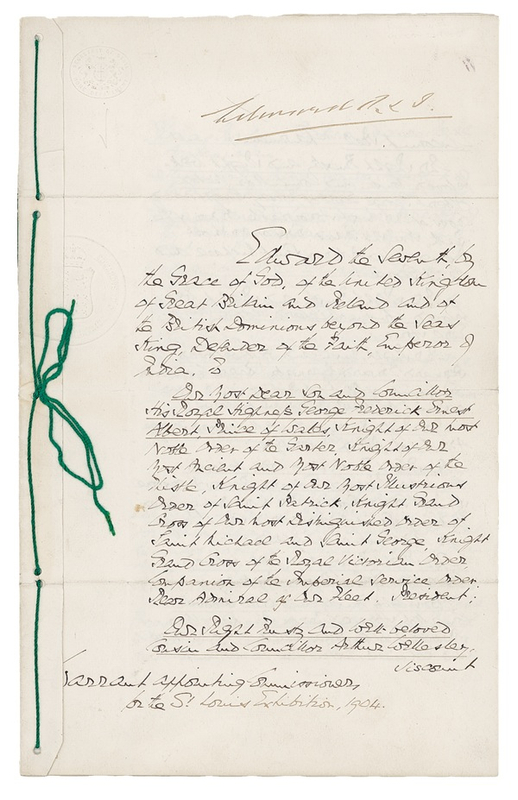 Edward R & I.
Edward the Seventh, by
the Grace of God, of the United Kingdom
of Great Britain and Ireland and of
the British Dominions beyond the Seas
King, Defender of the Faith, Emperor of
India, To
Our Most Dear Son and Councillor
His Royal Highness George Frederick Ernest
Albert Prince of Wales, Knight of Our most
Noble Order of the Garter, Knight of Our
Most Ancient and Most Noble Order of the
Thistle, Knight of Our Most Illustrious
Order of Saint Patrick, Knight Grand
Cross of Our most Distinguished Order of
Saint Michael and Saint George Knight
Grand Cross of the Royal Victorian Order
Companion of the Imperial Service Order
Rear Admiral of Our Fleet. President;
Our Right Trusty and well beloved
Cousin and Councillor Arthur Wellesley,
Viscount
Warrant appointing Commissioners,
for the St. Louis Exhibition, 1904.